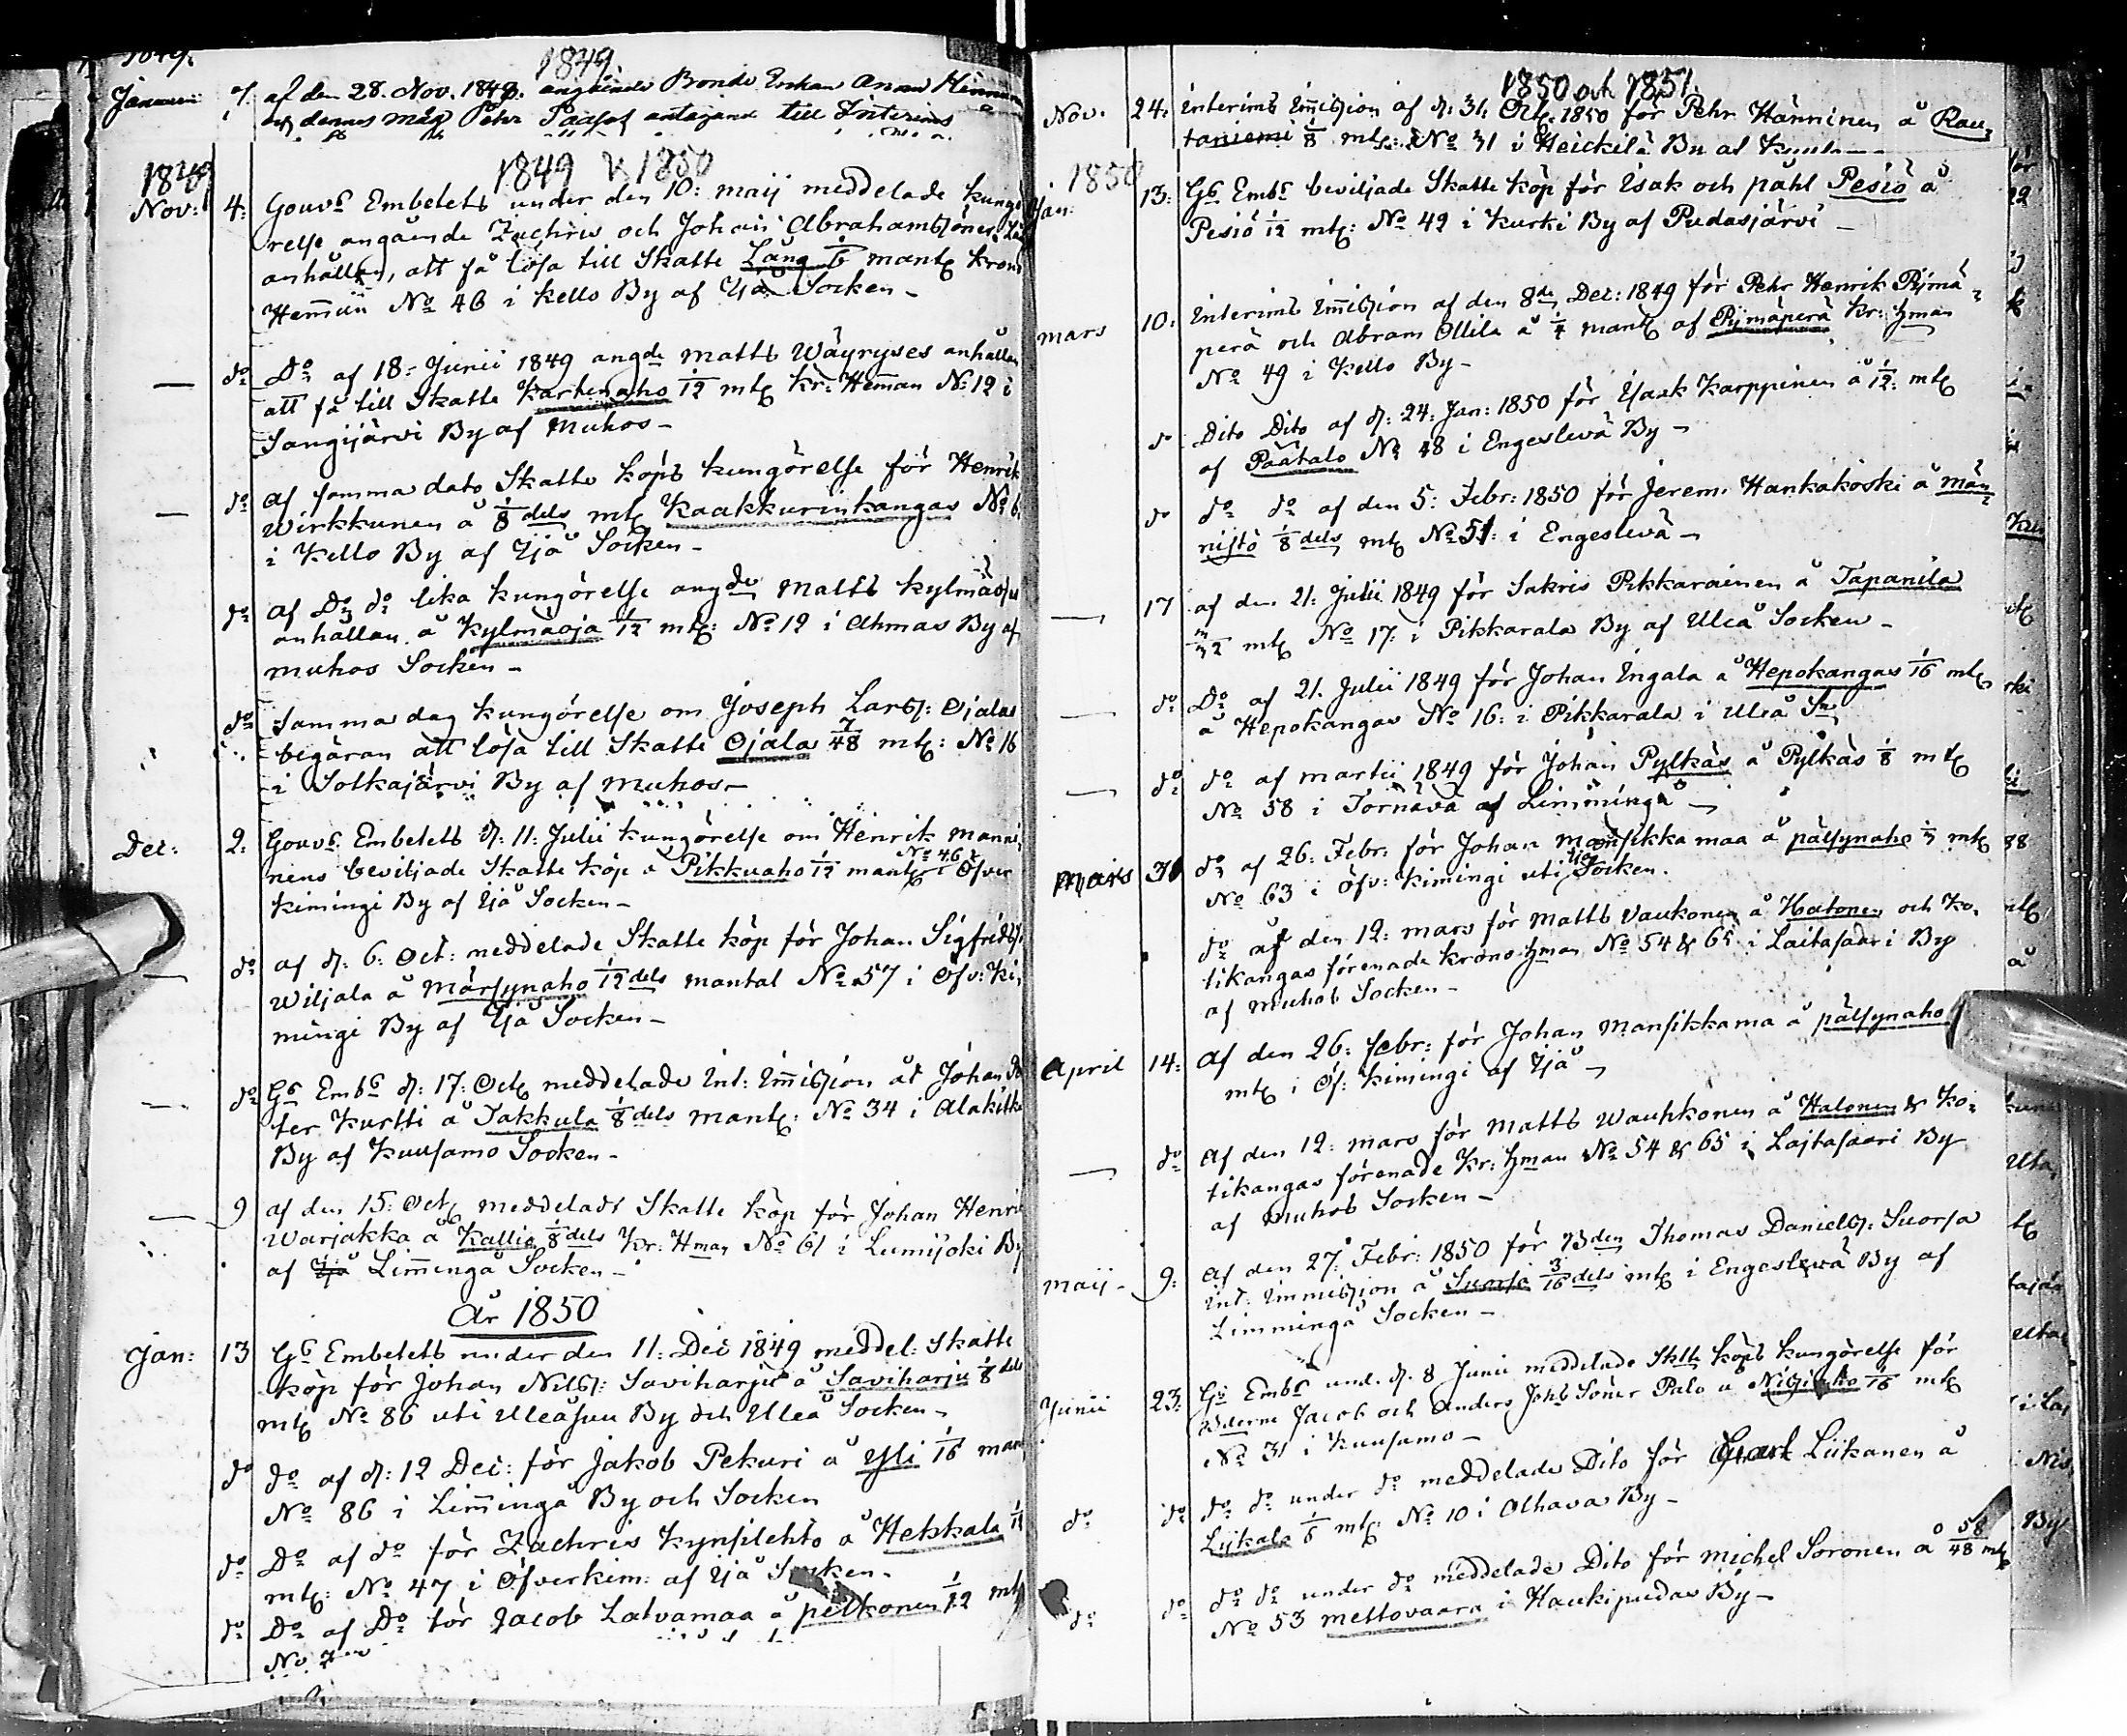 1849.
Januarii 7. af den 28. Nov. 1848. angående Bonde Enkan Anna
och dennes måg Pehr antagande till Interims
1849 & 1850
1849
Nov: 4: Gouvs Embetets under den 10: maij meddelade kungö
relse angående Zachris och Johan Abrahamssöners
anhållan, att få lösa till Skatte Lång 1/6 mantl krono
Hem̅an No 46 i Kello By af Ijå Socken –
— do Do af 18: Junii 1849 angde Matts Wäyryses anhållan
att få till Skatte Karhenaho 1/12 mtl kr: Hem̅an No 12 i
Sangijärvi By af Muhos –
— do af samma dato Skatte köps kungörelse för Henrik
Wirkkunen å 1/8 dels mtl Kaakkurinkangas No 6.
i Kello By af Ijå Socken –
do af Do do lika kungörelse angde Matts Kylmäojas
anhållan å Kylmäoja 1/12 mtl: No 12 i Ahmas By af
muhos Socken –
do Samma dag kungörelse om Joseph Larss: Ojalas
begäran att lösa till Skatte Ojala 7/48 mtl: No 16
i Sotkajärvi By af Muhos –
Dec: 2: Gouvs Embetets d: 11: Julii kungörelse om Henrik Manni
nens beviljade Skatte köp å Pikkuaho 1/12 mantl No 46 i Öfver
kimingi By af Ijå Socken –
— do af d: 6: Oct: meddelade Skatte köp för Johan Sigfridss
Wiljala å Märsynaho 1/12 dels mantal No 57 i Öfv: Ki
mingi By af Ijå Socken –
— do Gs Embs d: 17: Octb meddelade Int: Im̅ission åt Johan
ter Kurtti å Jakkula 1/8 dels mantl: No 34 i Alakitka
By af Kuusamo Socken –
— 9 af den 15: Octb meddelade Skatte köp för Johan Henri
Warjakka å Kallio 1/8 dels Kr: Hman No 61 i Lumijoki By
af Ijå Lim̅inga Socken –
År 1850
Jan: 13 Gs Embetets under den 11: Dec 1849 meddel: Skatte
köp för Johan Nilss: Saviharju å Saviharju 1/8 dels
mtl No 86 uti Uleåsuu By och Uleå Socken –
do do af d: 12 Dec: för Jakob Pekuri å Yli 1/16 man
No 86 i Lim̅inga By och Socken
do Do af do för Zachris Kynsilehto å Hekkala
mtl: No 47 i Öfverkim: af Ijå Socken.
do Do af Do för Jacob Latvamaa å Pelkonen 1/12 mtl
No
1850 och 1851.
Nov. 24: interims im̅ission af d: 31: Oct. 1850 för Pehr Hänninen å Rau
taniemi 1/8 mtl: No 31 i Heickilä By af
1850
Jan: 13: Gs Embs beviljade Skatte köp för Isak och påhl Pesiö å
Pesiö 1/12 mtl: No 42 i Kurki By af Pudasjärvi –
mars 10: interims im̅ission af den 8de Dec: 1849 för Pehr Henrik Pijmä
perä och Abram Ollila å 1/4 mantl af Pijmäperä Kr: hman
No 49 i Kello By –
do Dito Dito af d: 24: Jan: 1850 för Isaak Karppinen å 1/12: mtl
af Päätalo No 48 i Engeslevä By –
do do do af den 5: Febr: 1850 för Jerem: Hankakoski å Män
nistö 1/8 dels mtl No 51: i Engeslevä –
— 17 af den 21: Julii 1849 för Sakris Pikkarainen å Tapanila
mtl No 17: i Pikkarala By af Uleå Socken –
— do Do af 21. Julii 1849 för Johan Ingala å Hepokangas 1/16 mtl
å Hepokangas No 16: i Pikkarala i Uleå Sn
— do do af martii 1849 för Johan Pylkäs å Pylkäs 1/8 mtl
No 58 i Tornävä af Limminga –
mars 31 do af 26: Febr: för Johan Mansikka maa å pälsynaho mtl
No 63 i Öfv: Kimingi uti Ijå Socken.
do af den 12: mars för Matts Vaukonen å Hatonen och Ko
tikangas förenade krono hman No 54 & 65 i Laitasaari By
af muhos Socken –
April 14: af den 26: febr: för Johan Mansikkama å pälsynaho
mtl i Öf: Kimingi af Ijå –
— do Af den 12: mars för Matts Wauhkonen å Halonen & Ko
tikangas förenade Kr: hman No 54 & 65 i Lajtasaari By
af Muhos Socken –
maij – 9: af den 27: Febr: 1850 för Bden Thomas Danielss: Suorsa
int: immission å Suorsa 3/16 dels mtl i Engeslevä By af
Limminga Socken –
Junii 23: Gs Embs und. d. 8 Junii meddelade Sktte köps kungörelse för
Bderne Jacob och Anders Johs Söner Palo å 1/16 mtl
No 31 i Kuusamo –
do do do do under do meddelade Dito för Liikanen å
Lijkala 1/6 mtl No 10 i Olhava By –
do do do do under do meddelade Dito för Michel Soronen å 58/48 mtl
No 53 Mettovaara i Haukipudas By –